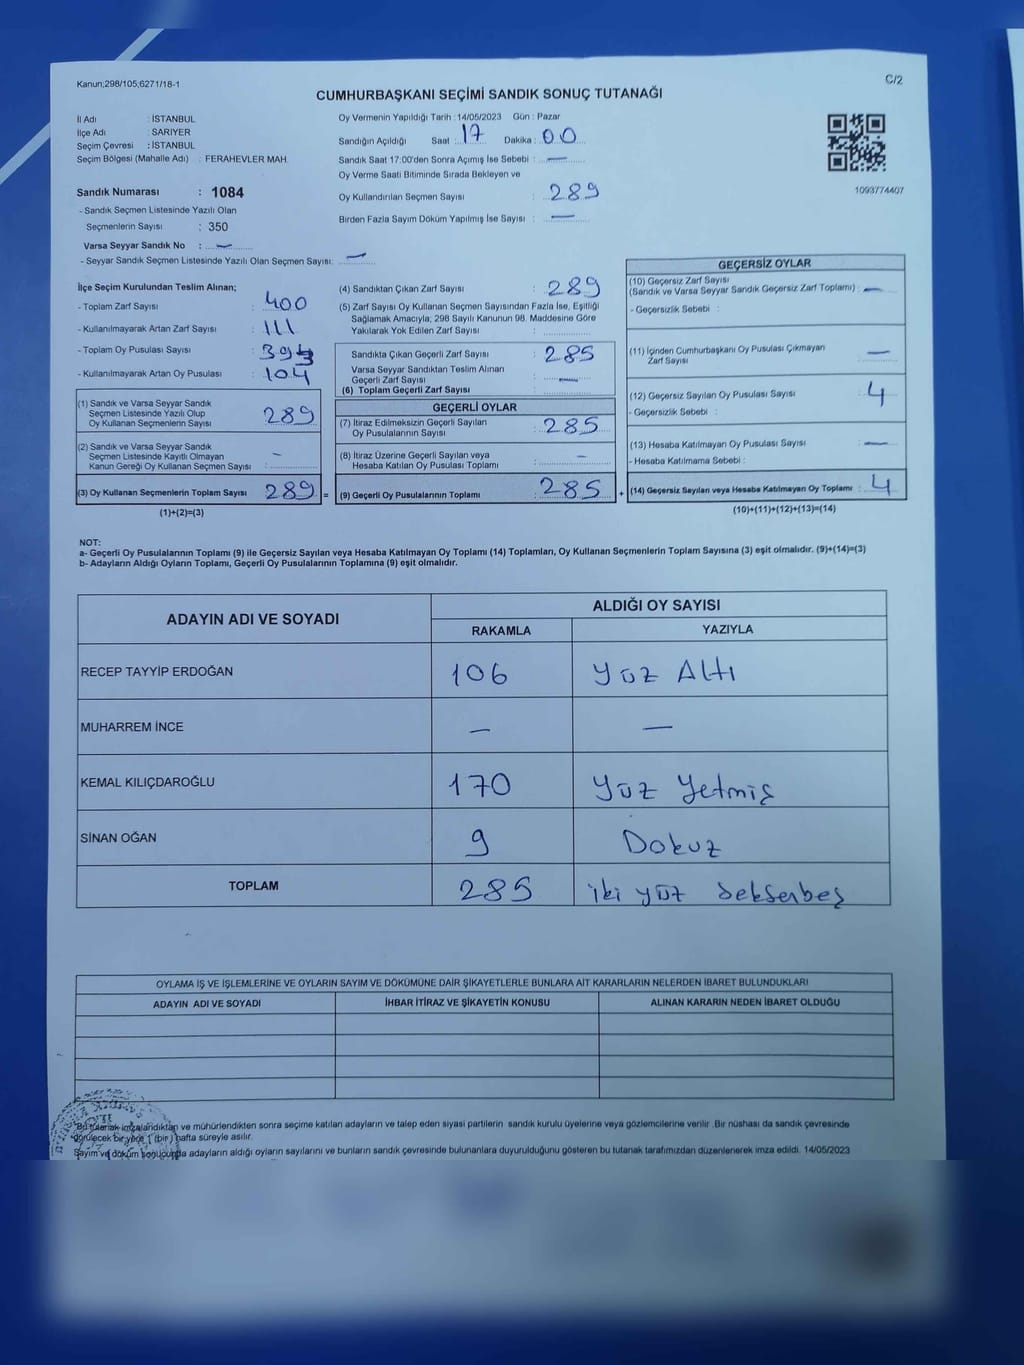 Kanun;298/105;6271/18-1
C/2
CUMHURBAŞKANI SEÇİMİ SANDIK SONUÇ TUTANAĞI
İl Adı : İSTANBUL
İlçe Adı : SARIYER
Seçim Çevresi : İSTANBUL
Seçim Bölgesi (Mahalle Adı) : FERAHEVLER MAH.
Sandık Numarası : 1084
- Sandık Seçmen Listesinde Yazılı Olan
Seçmenlerin Sayısı : 350
Varsa Seyyar Sandık No : —
- Seyyar Sandık Seçmen Listesinde Yazılı Olan Seçmen Sayısı: —
Oy Vermenin Yapıldığı Tarih : 14/05/2023 Gün : Pazar
Sandığın Açıldığı Saat : 17 Dakika : 00
Sandık Saat 17:00'den Sonra Açımış İse Sebebi : —
Oy Verme Saati Bitiminde Sırada Bekleyen ve
Oy Kullandırılan Seçmen Sayısı : 289
Birden Fazla Sayım Döküm Yapılmış İse Sayısı : —
1093774407
İlçe Seçim Kurulundan Teslim Alınan;
- Toplam Zarf Sayısı : 400
- Kullanılmayarak Artan Zarf Sayısı : 111
- Toplam Oy Pusulası Sayısı : 393
- Kullanılmayarak Artan Oy Pusulası : 104
(1) Sandık ve Varsa Seyyar Sandık
Seçmen Listesinde Yazılı Olup
Oy Kullanan Seçmenlerin Sayısı : 289
(2) Sandık ve Varsa Seyyar Sandık
Seçmen Listesinde Kayıtlı Olmayan
Kanun Gereği Oy Kullanan Seçmen Sayısı : –
(3) Oy Kullanan Seçmenlerin Toplam Sayısı : 289 =
(1)+(2)=(3)
(4) Sandıktan Çıkan Zarf Sayısı : 289
(5) Zarf Sayısı Oy Kullanan Seçmen Sayısından Fazla İse, Eşitliği
Sağlamak Amacıyla; 298 Sayılı Kanunun 98. Maddesine Göre
Yakılarak Yok Edilen Zarf Sayısı :
Sandıkta Çıkan Geçerli Zarf Sayısı : 285
Varsa Seyyar Sandıktan Teslim Alınan
Geçerli Zarf Sayısı : —
(6) Toplam Geçerli Zarf Sayısı
GEÇERLİ OYLAR
(7) İtiraz Edilmeksizin Geçerli Sayılan
Oy Pusulalarının Sayısı : 285
(8) İtiraz Üzerine Geçerli Sayılan veya
Hesaba Katılan Oy Pusulası Toplamı : –
(9) Geçerli Oy Pusulalarının Toplamı : 285 +
GEÇERSİZ OYLAR
(10) Geçersiz Zarf Sayısı
(Sandık ve Varsa Seyyar Sandık Geçersiz Zarf Toplamı) : —
- Geçersizlik Sebebi :
(11) İçinden Cumhurbaşkanı Oy Pusulası Çıkmayan
Zarf Sayısı : —
(12) Geçersiz Sayılan Oy Pusulası Sayısı : 4
- Geçersizlik Sebebi :
(13) Hesaba Katılmayan Oy Pusulası Sayısı : —
- Hesaba Katılmama Sebebi :
(14) Geçersiz Sayılan veya Hesaba Katılmayan Oy Toplamı : 4
(10)+(11)+(12)+(13)=(14)
NOT:
a- Geçerli Oy Pusulalarının Toplamı (9) ile Geçersiz Sayılan veya Hesaba Katılmayan Oy Toplamı (14) Toplamları, Oy Kullanan Seçmenlerin Toplam Sayısına (3) eşit olmalıdır. (9)+(14)=(3)
b- Adayların Aldığı Oyların Toplamı, Geçerli Oy Pusulalarının Toplamına (9) eşit olmalıdır.
ADAYIN ADI VE SOYADI
ALDIĞI OY SAYISI
RAKAMLA YAZIYLA
RECEP TAYYİP ERDOĞAN 106 Yüz Altı
MUHARREM İNCE — —
KEMAL KILIÇDAROĞLU 170 Yüz Yetmiş
SİNAN OĞAN 9 Dokuz
TOPLAM 285 iki yüz seksenbeş
OYLAMA İŞ VE İŞLEMLERİNE VE OYLARIN SAYIM VE DÖKÜMÜNE DAİR ŞİKAYETLERLE BUNLARA AİT KARARLARIN NELERDEN İBARET BULUNDUKLARI
ADAYIN ADI VE SOYADI İHBAR İTİRAZ VE ŞİKAYETİN KONUSU ALINAN KARARIN NEDEN İBARET OLDUĞU
Bu tutanak imzalandıktan ve mühürlendikten sonra seçime katılan adayların ve talep eden siyasi partilerin sandık kurulu üyelerine veya gözlemcilerine verilir .Bir nüshası da sandık çevresinde
görülecek bir yere 1 (bir ) hafta süreyle asılır.
Sayım ve döküm sonucunda adayların aldığı oyların sayılarını ve bunların sandık çevresinde bulunanlara duyurulduğunu gösteren bu tutanak tarafımızdan düzenlenerek imza edildi. 14/05/2023